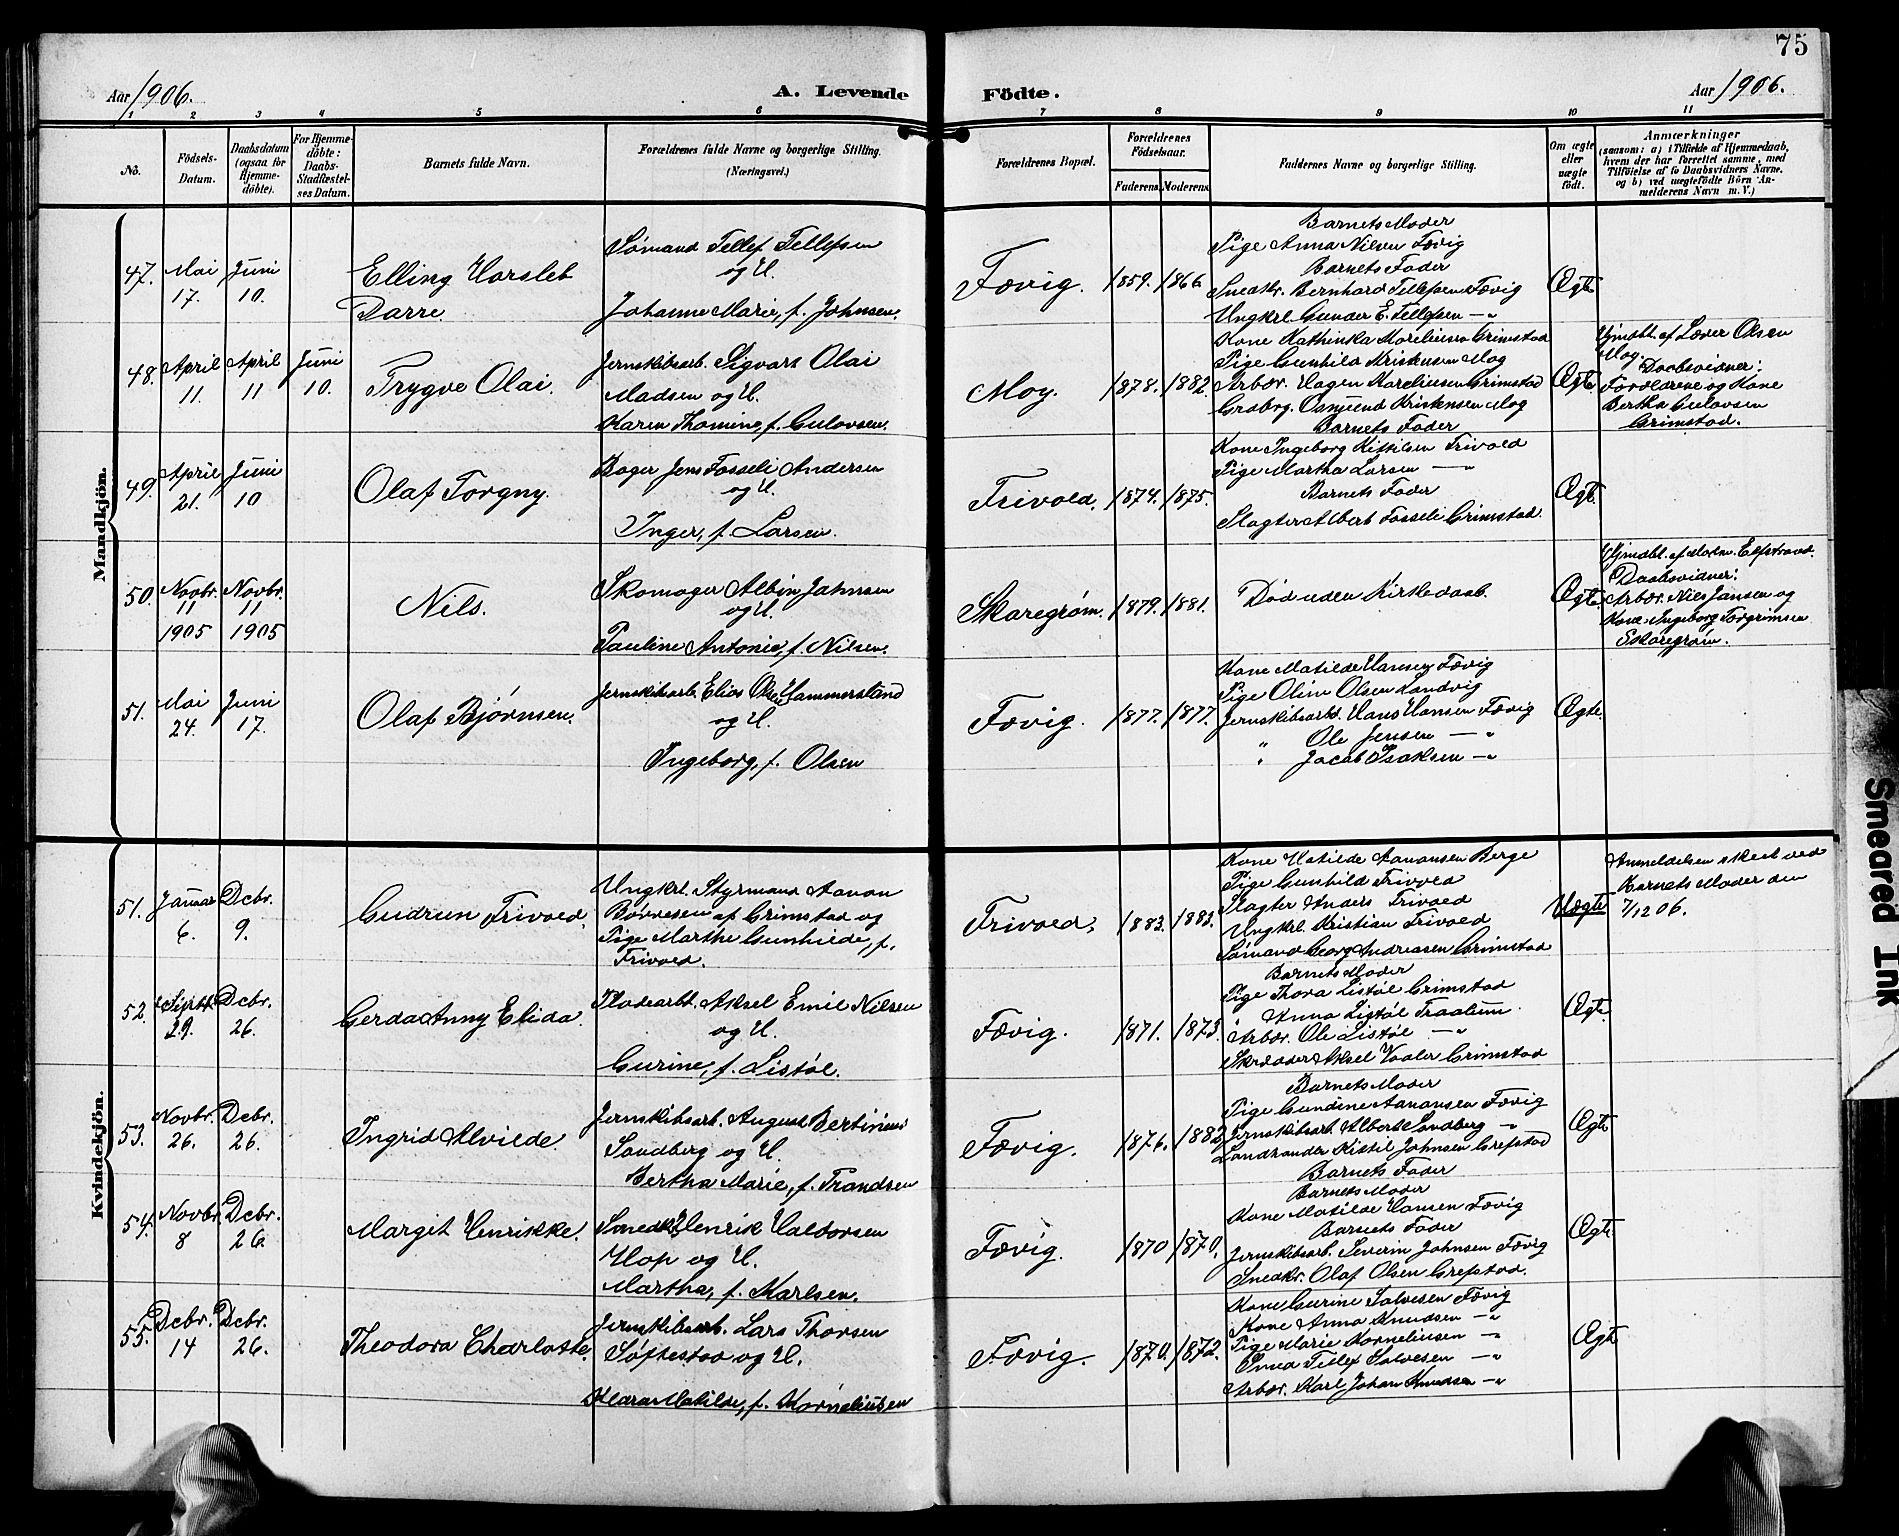 75
Aar 1906.
A. Levende Födte.
Aar 1906.
1 2 3 4 5 6 7 8 9 10 11
No.
Födsels-
Datum.
Daabsdatum
(ogsaa for
Hjemme-
döbte).
For Hjemme-
döbte:
Daabs-
Stadfæstel-
ses Datum.
Barnets fulde Navn.
Forældrenes fulde Navne og borgerlige Stilling.
(Næringsvei.)
Forældrenes Bopæl.
Forældrenes
Födselsaar.
Faderens. Moderens.
Faddernes Navne og borgerlige Stilling.
Om ægte
eller
uægte
födt.
Anmærkninger
(saasom: a) i Tilfælde af Hjemmedaab,
hvem der har forrettet samme, med
Tilföielse af to Daabsvidners Navne,
og b) ved uægtefödte Börn An-
melderens Navn m. V.)
Mandkjön.
47.
Mai
17.
Juni
10.
Elling Harsleb
Darre.
Sømand Tellef Tellefsen
og H.
Johanne Marie, f. Johnsen.
Fævig.
1859. 1866.
Barnets Moder
Pige Anna Nilsen Fævig
Barnets Fader
Snedkr. Bernhard Tellefsen Fævig
Ungkrl. Gunder E. Tellefsen —"
Ægte
48.
April
11.
April
11
Juni
10.
Trygve Olai.
Jernskibsarb. Sigvart Olai
Madsen og H.
Karen Thomine, f. Gulovsen.
Moy.
1878. 1882.
Kone Kathinka Moreliusen Grimstad
Pige Gunhild Kristensen Moy
Arbdr. Hagen Moreliusen Grimstad
Graborg. Osmund Kristensen Moy
Barnets Fader
Ægte
Hjmdbt. af Lærer Olsen
Moy.
Daabsvidner:
Forældrene og Kone
Bertha Gulovsen
Grimstad.
49.
April
21.
Juni
10
Olaf Torgny.
Bager Jens Fosseli Andersen
og H.
Inger, f. Larsen.
Trivold.
1874. 1875.
Kone Ingeborg Kittilsen Trivold
Pige Martha Larsen —"
Barnets Fader
Slagter Albert Fosseli Grimstad.
Ægte
50.
Novbr.
11
1905
Novbr.
11
1905
Nils.
Skomager Albin Jahnsen
og H.
Pauline Antonie, f. Nilsen.
Skaregrøm.
1879. 1881.
Død uden Kirkedaab.
Ægte
Hjmdbt. af Madm. Elfstrand.
Daabsvidner:
Arbdr. Niels Jansen og
Kone Ingeborg Torgrimsen
Skaregrøm.
51.
Mai
24.
Juni
17.
Olaf Bjørnsen.
Jernskibsarb. Elias Olsen Hammersland
og H.
Ingeborg, f. Olsen
Fævig.
1877. 1877.
Kone Matilde Hansen Fævig
Pige Oline Olsen Sandvig
Jernskibsarbd. Hans Hansen Fævig
" Ole Jensen —"
" Jacob Isaksen —"
Ægte.
Kvindekjön.
51.
Januar
6.
Dcbr.
9.
Gudrun Trivold.
Ungkrl. Styrmand Aanon
Børresen af Grimstad og
Pige Marthe Gunhilde, f.
Trivold.
Trivold.
1883. 1883.
Kone Matilde Aanonsen Berge
Pige Gunhild Trivold
Slagter Anders Trivold
Ungkrl. Kristian Trivold
Sømand Georg Andreasen Grimstad
Uægte
Anmeldelsen skeet ved
Barnets Moder den
7/12 06.
52.
Septbr.
29.
Dcbr.
26.
Gerda Anny Elida.
Pladearbt. Aksel Emil Nilsen
og H.
Gurine, f. Listøl.
Fævig.
1871. 1873.
Barnets Moder
Pige Thora Listøl Grimstad
" Anna Listøl Traalum
Arbdr. Ole Listøl —"
Skrædder Aksel Vaaler Grimstad
Ægte.
53.
Novbr.
26.
Dcbr.
26.
Ingrid Alvilde.
Jernskibsarb. August Bertinius
Sandberg og H.
Bertha Marie, f. Trandsen
Fævig.
1876. 1882.
Barnets Moder
Pige Gundine Aanonsen Fævig
Jernskibsarb. Albert Sandberg —"
Landhandler Kittil Johnsen Grefstad
Barnets Fader
Ægte
54.
Novbr.
8
Dcbr.
26.
Margit Henrikke.
Smedk. Henrik Haldorsen
Hop og H.
Martha, f. Karlsen.
Fævig.
1870 1870.
Barnets Moder
Kone Matilde Hansen Fævig
Barnets Fader
Jernskibsarb. Severin Johnsen Fævig
Snedkr. Olaf Olsen Grefstad.
Ægte
55.
Dcbr.
14
Dcbr.
26.
Theodora Charlotte.
Jernskibsarb. Lars Thorsen
Søftestad og H.
Klara Matilde, f. Korneliusen
Fævig.
1870. 1872.
Kone Gurine Salvesen Fævig
Kone Anna Knudsen —"
Pige Marie Korneliusen —"
Smed Tellef Salvesen —"
Arbdr. Karl Johan Knudsen —"
Ægte
Smeared Ink